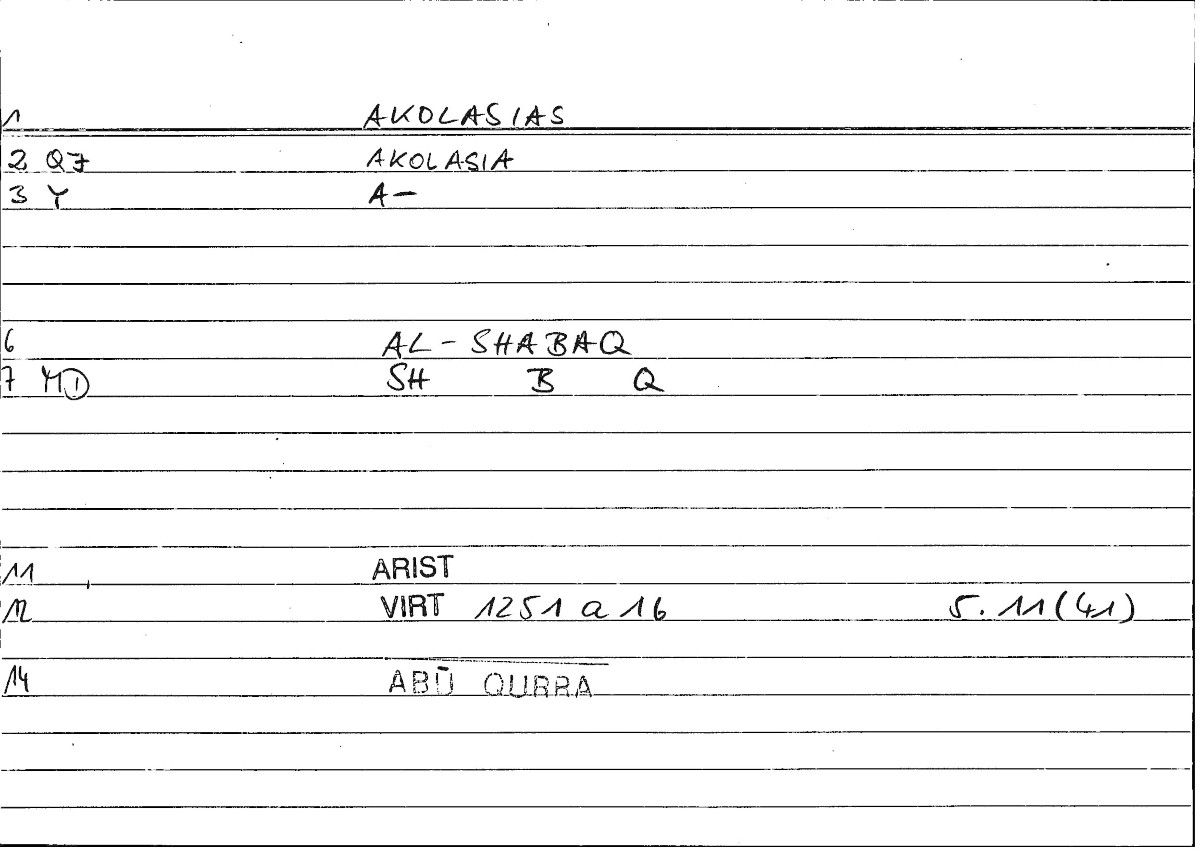 1 AKOLASIAS
2 Q7 AKOLASIA
3 Y A-
6 AL-SHABAQ
7 M① SH B Q
11 ARIST
12 VIRT 1251 a 16 5.11(41)
14 ABŪ QURRA